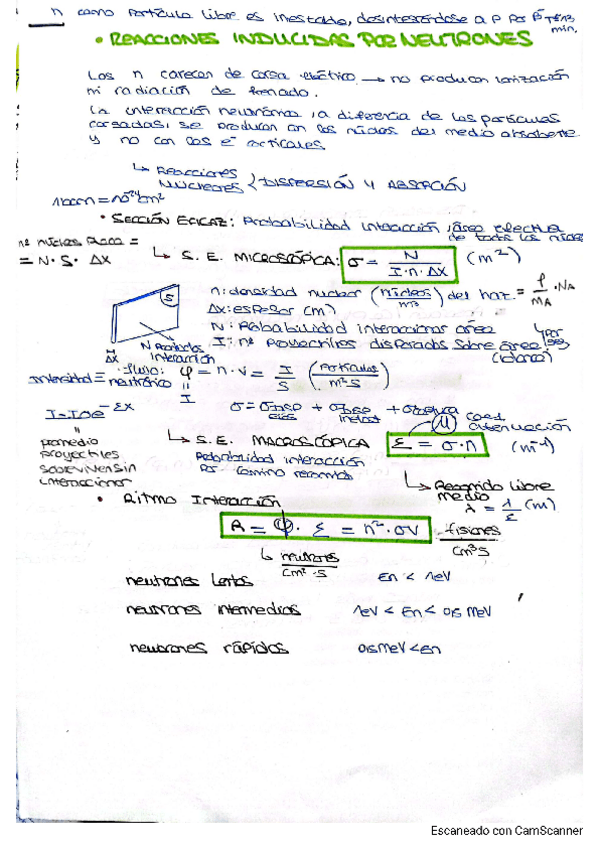 n como partícula libre es inestable, desintegrándose a p por β⁻
min.
• REACCIONES INDUCIDAS POR NEUTRONES
Los n carecen de carga eléctrica → no producen ionización
ni radiación de frenado.
La interacción neutrónica, a diferencia de las partículas
cargadas, se producen con los núcleos del medio absorbente
y no con los e⁻ corticales
↳ Reacciones
Nucleares { DISPERSIÓN Y ABSORCIÓN
1barn = 10⁻²⁴cm²
• SECCIÓN EFICAZ: Probabilidad interacción, área efectiva
de todos los núcleos
nº núcleos placa =
= N·S·Δx
↳ S.E. MICROSCÓPICA: σ = N / I·n·Δx (m²)
n: densidad nuclear (núcleos / m³) del haz. = ρ / MA · NA
S
Δx: espesor (m)
N: Probabilidad interaccionar área
I: nº proyectiles disparados sobre área
(blanco)
Δx
N productos
interacción
Intensidad = flujo: φ = n·v = I / S (partículas / m²s)
neutrónico
I
I = I₀e^-Σx
σ = σdisp + σdisp + σabsorc
elás inelast
μ coef.
atenuación
promedio
proyectiles
sobreviven sin
interaccionar
↳ S.E. MACROSCÓPICA Σ = σ·n (m⁻¹)
Probabilidad interacción
por camino recorrido
↳ Recorrido libre
medio
λ = 1 / Σ (m)
• RITMO INTERACCIÓN
R = φ · Σ = n²·σv fisiones / cm³s
↳ neutrones / cm²·s
neutrones lentos En < 1eV
neutrones intermedios 1eV < En < 0,5 MeV
neutrones rápidos 0,5 MeV < En
Escaneado con CamScanner